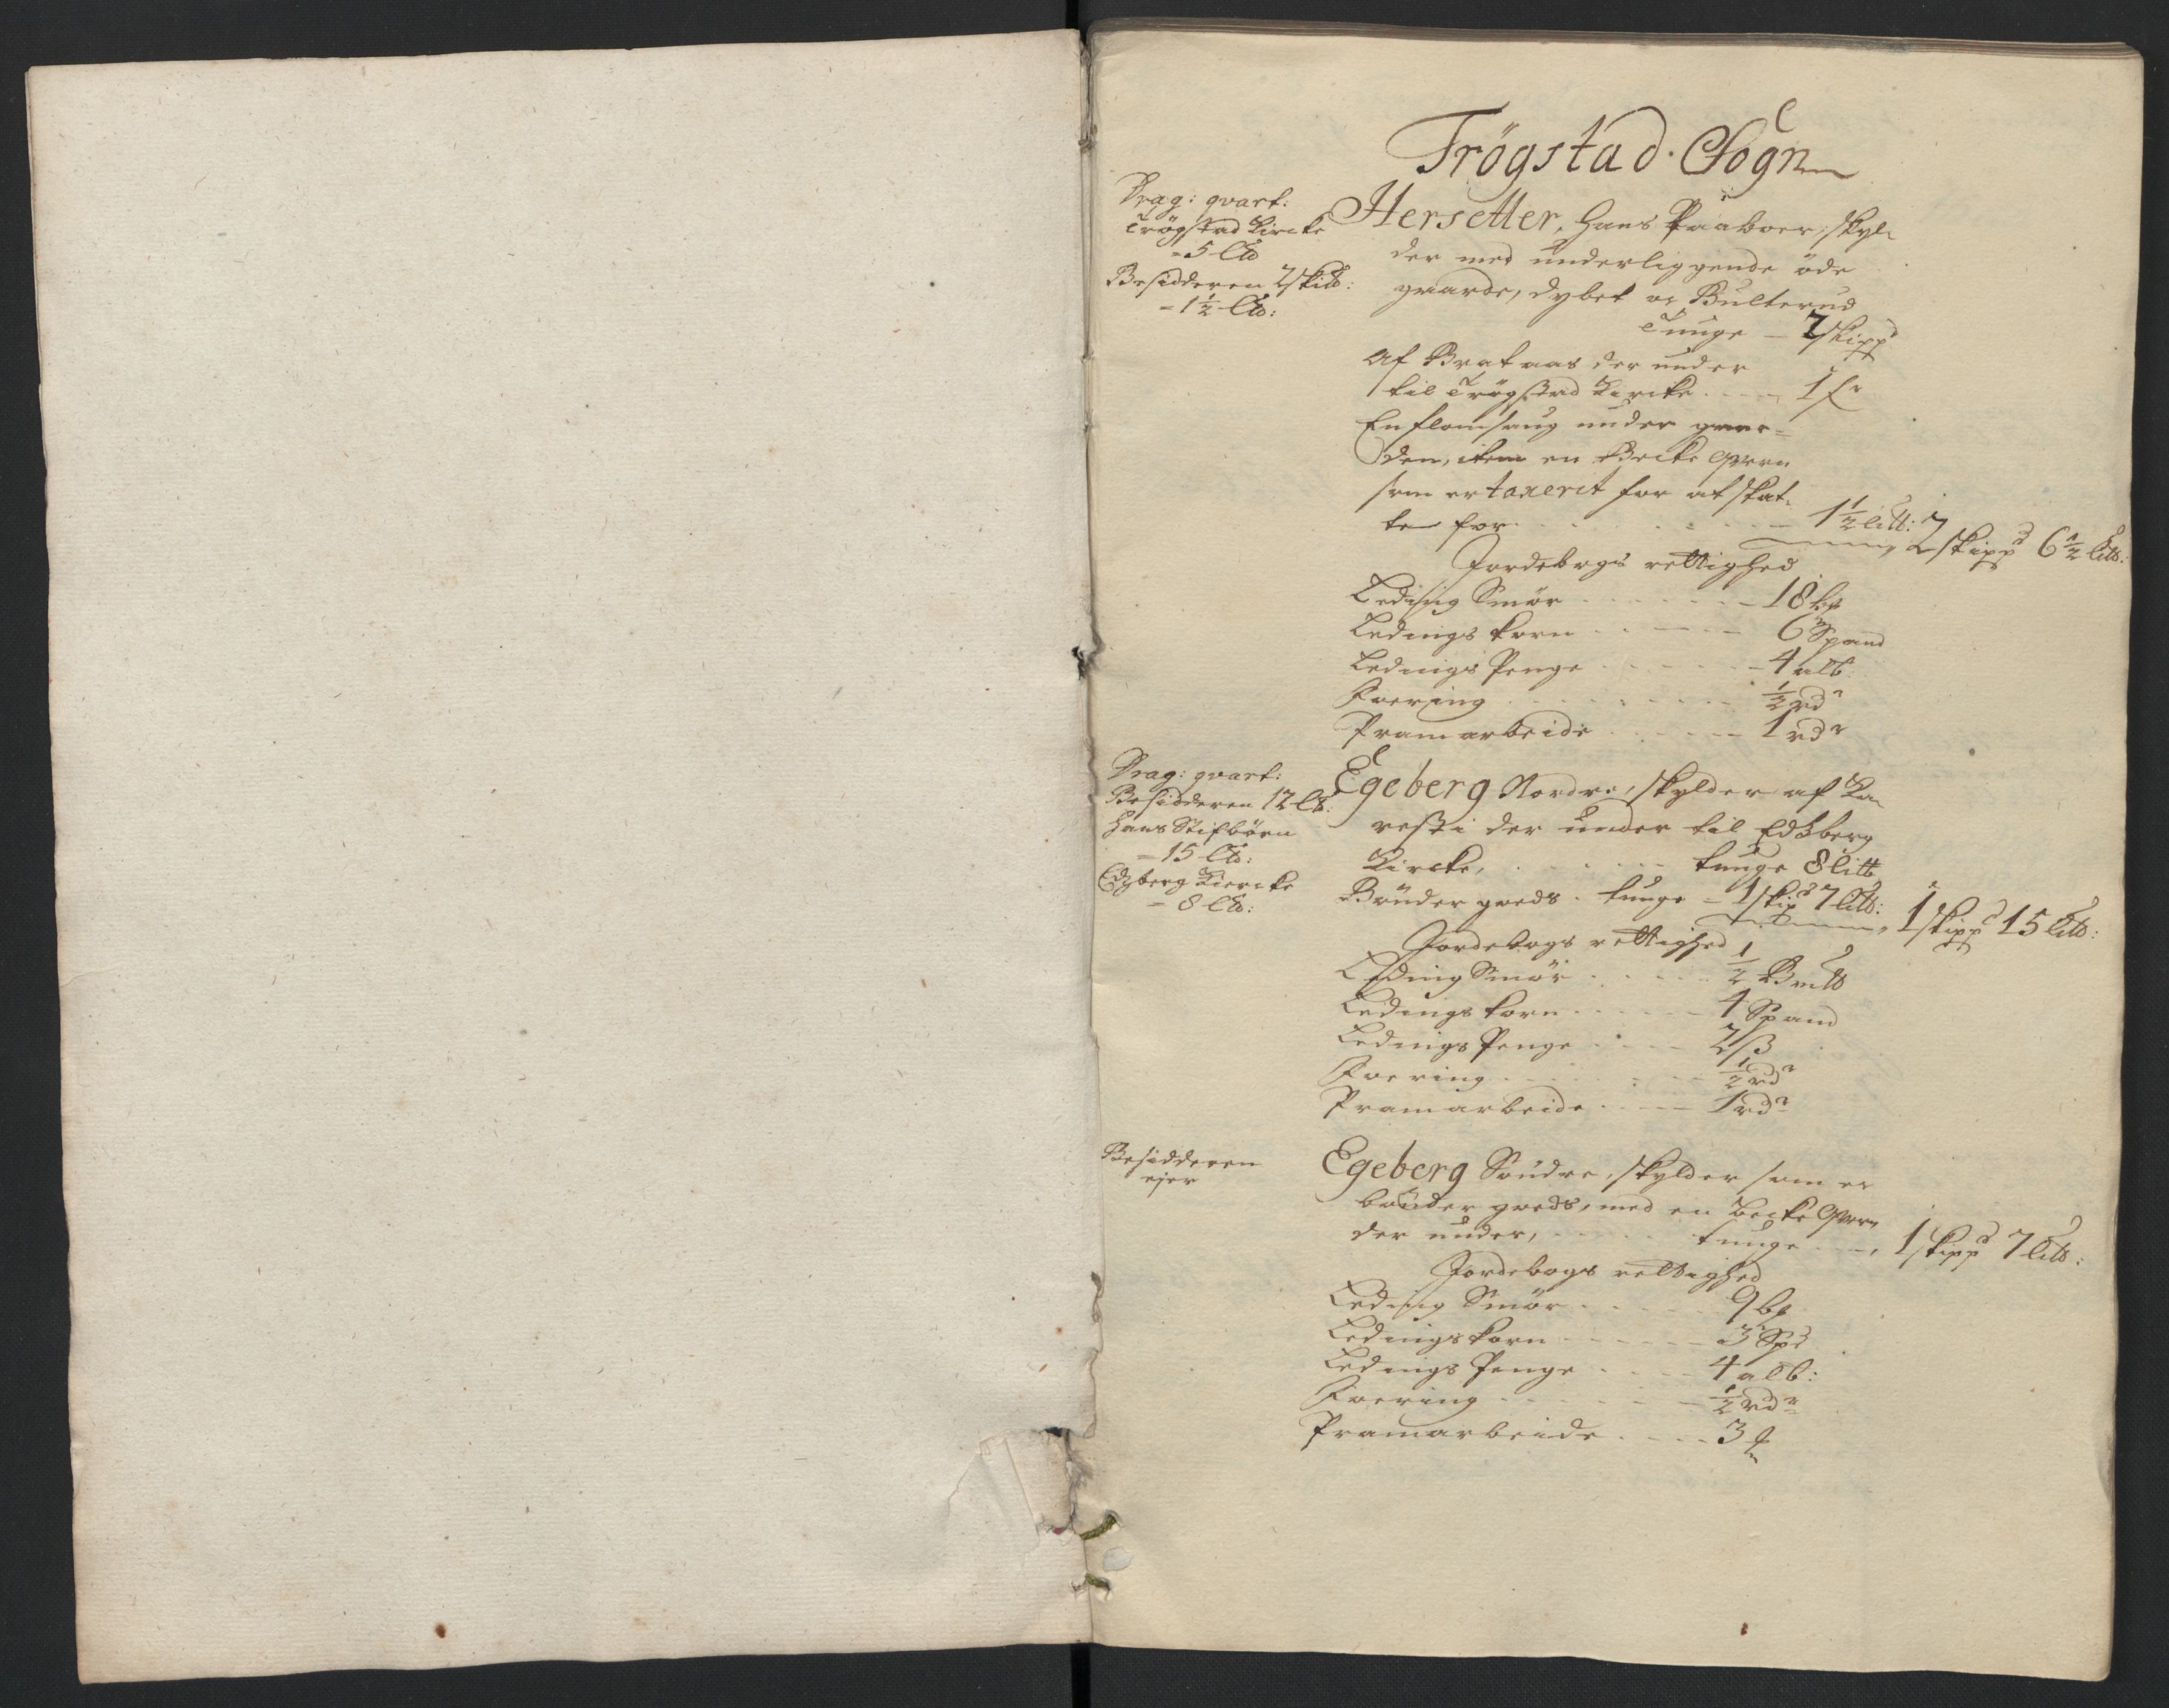 Trögstad Sogn
Drag: qvart:
Trögstad Kircke
= 5 lb
Besidderen 2 skib:
= 1½ lb:
Hersetter, Hans Paaboer, skyl-
der med underliggende öde
gaarde, Dybet oc Bulterud
Tunge – 2 skippd
Af Brataas der under
til Trögstad Kircke - - - 1 fr
En flomsaug under gaar=
den, item en Becke Qvern
som er taxerit for at skat-
te for - - - 1½ litt: 2 skippd 6½ litb:
Jordebogs rettighed
Leding Smör - - - 18 bp
Ledings korn - - - 6 Spand
Ledings Penge - - - 4 alb
Foering - - - ½ rdr
Pramarbeide - - - 1 rdr
Drag: qvart:
Besidderen 12 lb:
Hans Stifbörn
= 15 lb:
Edzberg Kiercke
= 8 lb:
Egeberg Nordre, skylder af Ka-
resti der under til Edzberg
Kircke, - - - tunge 8 litt
Bönder goeds. tunge – 1 skipd 7 litb: 1 skippd 15 litb:
Jordebogs rettighed
Leding Smör - - - ½ Bmlb
Ledings korn - - - 4 Spand
Ledings Penge - - - 2 ß
Foering - - - ½ rdr
Pramarbeide - - - 1 rdr
Besidderen
ejer
Egeberg Söndre, skylder som er
bönder goeds, med en becke Qvern
der under, - - - tunge - - 1 skippd 7 litb:
Jordebogs rettighed
Leding Smör - - - 9 bp
Ledings korn - - - 3 Spd
Ledings Penge - - - 4 alb:
Foering - - - ½ rdr
Pramarbeide - - - 3